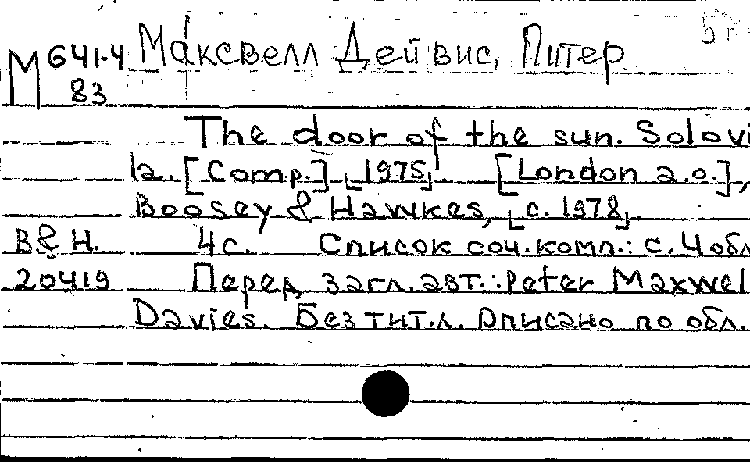 М 641-4 Максвелл Дейвис, Питер
83
The door of the sun. Solovi
la. [Comp.] [1975] [London a.o.],
Boosey & Hawkes, [c. 1978].
B&H. 4 с. Список соч. комп.: с. 4 обл
20419 Перед загл. авт.: Peter Maxwel
Davies. Без тит. л. Описано по обл.